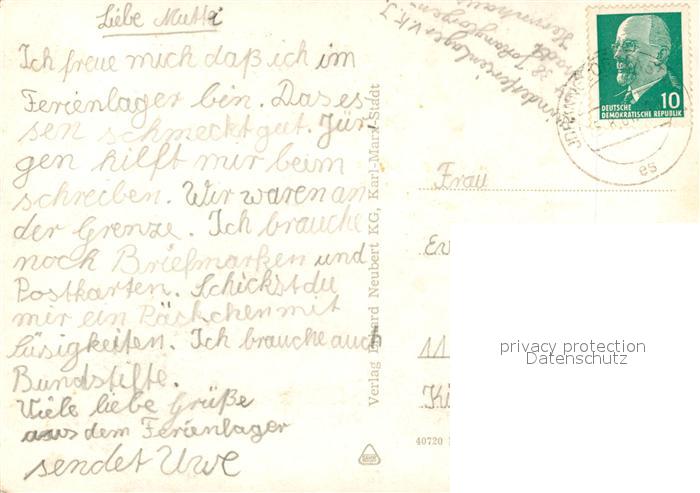 Liebe Mutti
Ich freue mich daß ich im
Ferienlager bin. Das es-
sen schmeckt gut. Jür-
gen hilft mir beim
schreiben. Wir waren an
der Grenze. Ich brauche
noch Briefmarken und
Postkarten. Schickst du
mir ein Päckchen mit
Süsigkeiten. Ich brauche auch
Bundstifte.
Viele liebe Grüße
aus dem Ferienlager
sendet Uwe
Verlag Erhard Neubert KG, Karl-Marx-Stadt
40720
Kinderferienlager V.K.J.
Johanngeorgen-
stadt
DEUTSCHE
DEMOKRATISCHE REPUBLIK
10
es
Frau
Ev
11
Ki
privacy protection
Datenschutz